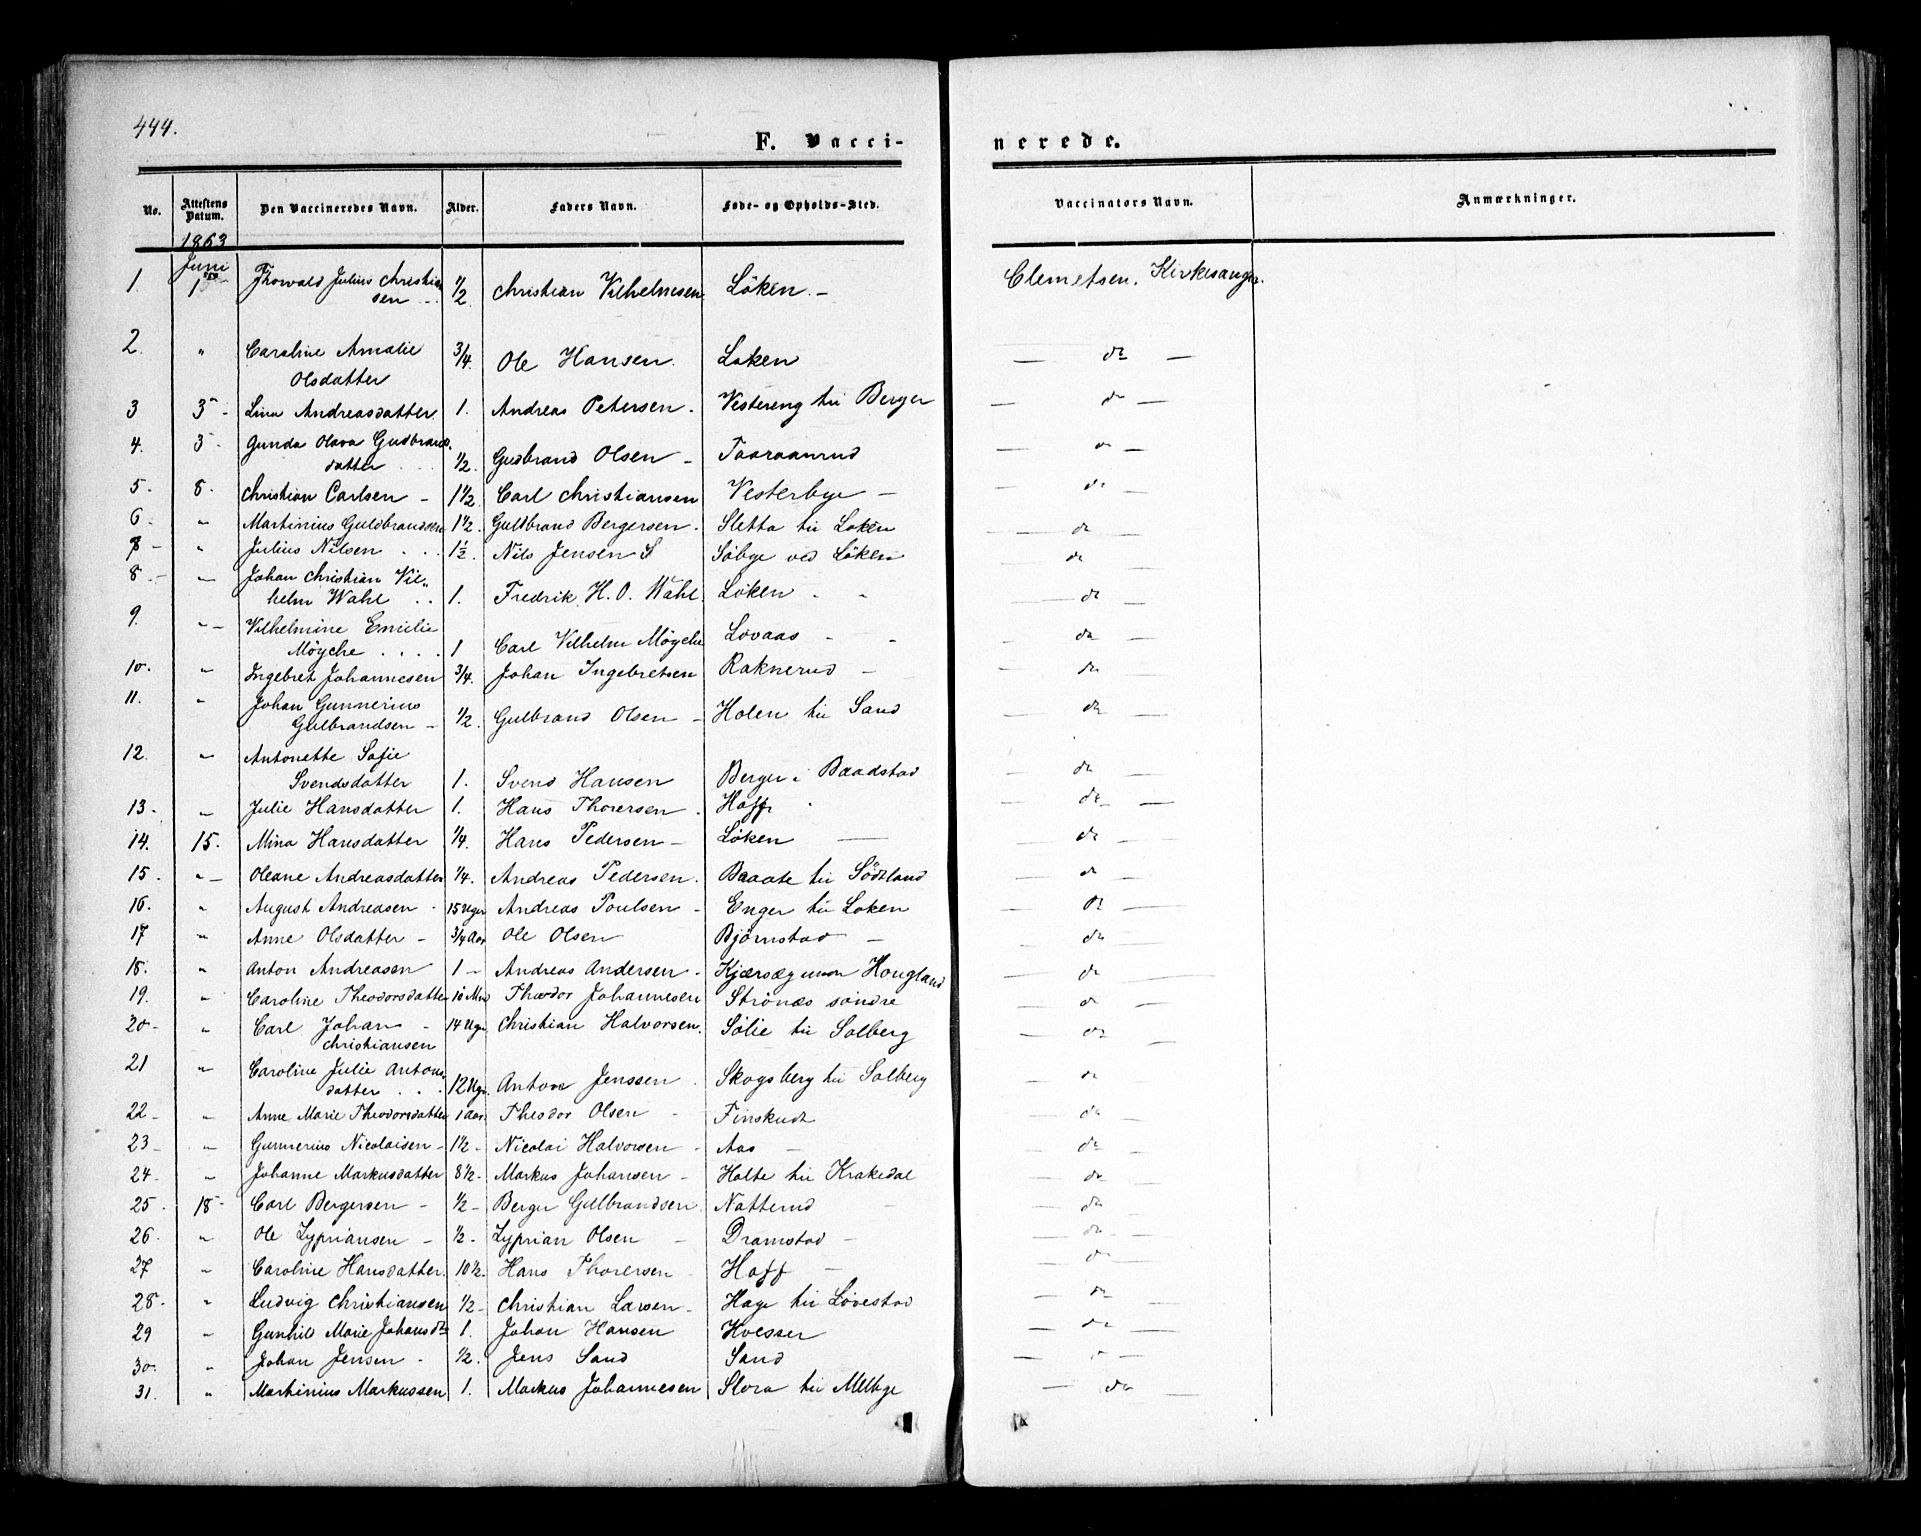 444.
F. Vacci-
nerede.
No. Attestens Datum. Den Vaccineredes Navn. Alder. Faders Navn. Føde- og Opholds-Sted. Vaccinators Navn. Anmærkninger.
1863
Juni
1. 1ste Thorvald Julius Christian
sen 1/2 Christian Vilhelmsen Löken - Clemetsen, Kirkesanger.
2. " Caroline Amalie
Olsdatter 3/4 Ole Hansen. Loken — do —
3 3 - Lina Andreasdatter 1. Andreas Petersen. Vestereng til Berger — do —
4. 5 - Gunda Olava Gudbrands
datter 1/2. Gudbrand Olsen - Taaraanrud — do —
5. 8. Christian Carlsen - 1 1/2 Carl Christiansen Vesterbye - — do —
6. " Martinius Guldbrandsen 1 1/2. Guldbrand Bergersen. Sletta til Loken — do —
7 - " Julius Nilsen 1 1/2. Nils Jensen S Söbye ved Löken — do
8 - " Johan Christian Vil„
helm Wahl 1. Fredrik H. O. Wahl. Löken — do —
9. " - Vilhelmine Emilie
Möyche 1 Carl Vilhelm Möyche Lovaas - — do —
10. " Ingebret Johannesen 3/4. Johan Ingebretsen Raknerud - — do —
11. " Johan Gunnerius
Gulbrandsen - 1/2. Gulbrand Olsen - Holen til Sand — do —
12. " Antonette Sofie
Svendsdatter 1. Svend Hansen Berger i Baadstad — do —
13. " Julie Hansdatter 1. Hans Thorersen. Hoff — do —
14. 15. Mina Hansdatter 1/4. Hans Pedersen - Löken — do —
15. " - Oleane Andreasdatter 1/4. Andreas Pedersen. Baaate til Södtland — do —
16. " August Andreasen 15 Uger Andreas Poulsen - Enger til Loken — do —
17 " Anne Olsdatter - 3/4 Aar Ole Olsen Björnstad - — do —
18. " Anton Andreasen 1 - Andreas Andersen - Kjærsæg Hougland — do —
19. " Caroline Theodorsdatter 10 Mnd Theodor Johannesen Strönæs söndre — do —
20 - " Carl Johan -
Christiansen 14 Ugr. Christian Halvorsen. Sölie til Solberg — do —
21 " Caroline Julie Antons
datter 12 Ugr. Anton Jenssen Skogsberg til Solberg — do —
22 - " Anne Marie Theodorsdatter 1 Aar Theodor Olsen - Finskudt — do —
23 - " Gunnerius Nicolaisen - 1 1/2 - Nicolai Halvorsen - Aas — do —
24. " Johanne Markusdatter 8 1/2 - Markus Johansen - Holte til Krakedal — do —
25. 18 - Carl Bergersen - 1/2 - Berger Gulbrandsen Natterud — do —
26. " Ole Zyprianssen - 1/2 - Zyprian Olsen - Dramstad - — do —
27 " Caroline Hansdatter. 10 1/2. Hans Thorersen Hoff - — do —
28. " Ludvig Christiansen 1/2 - Christian Larsen - Hage til Lövestad — do —
29 " Gunhild Marie Johansdtr 1. Johan Hansen Hvesser — do —
30. " Johan Jensen - 1/2. Jens Sand Sand — do —
31. " Martinius Markussen 1. Markus Johannesen Slora til Melbye — do —